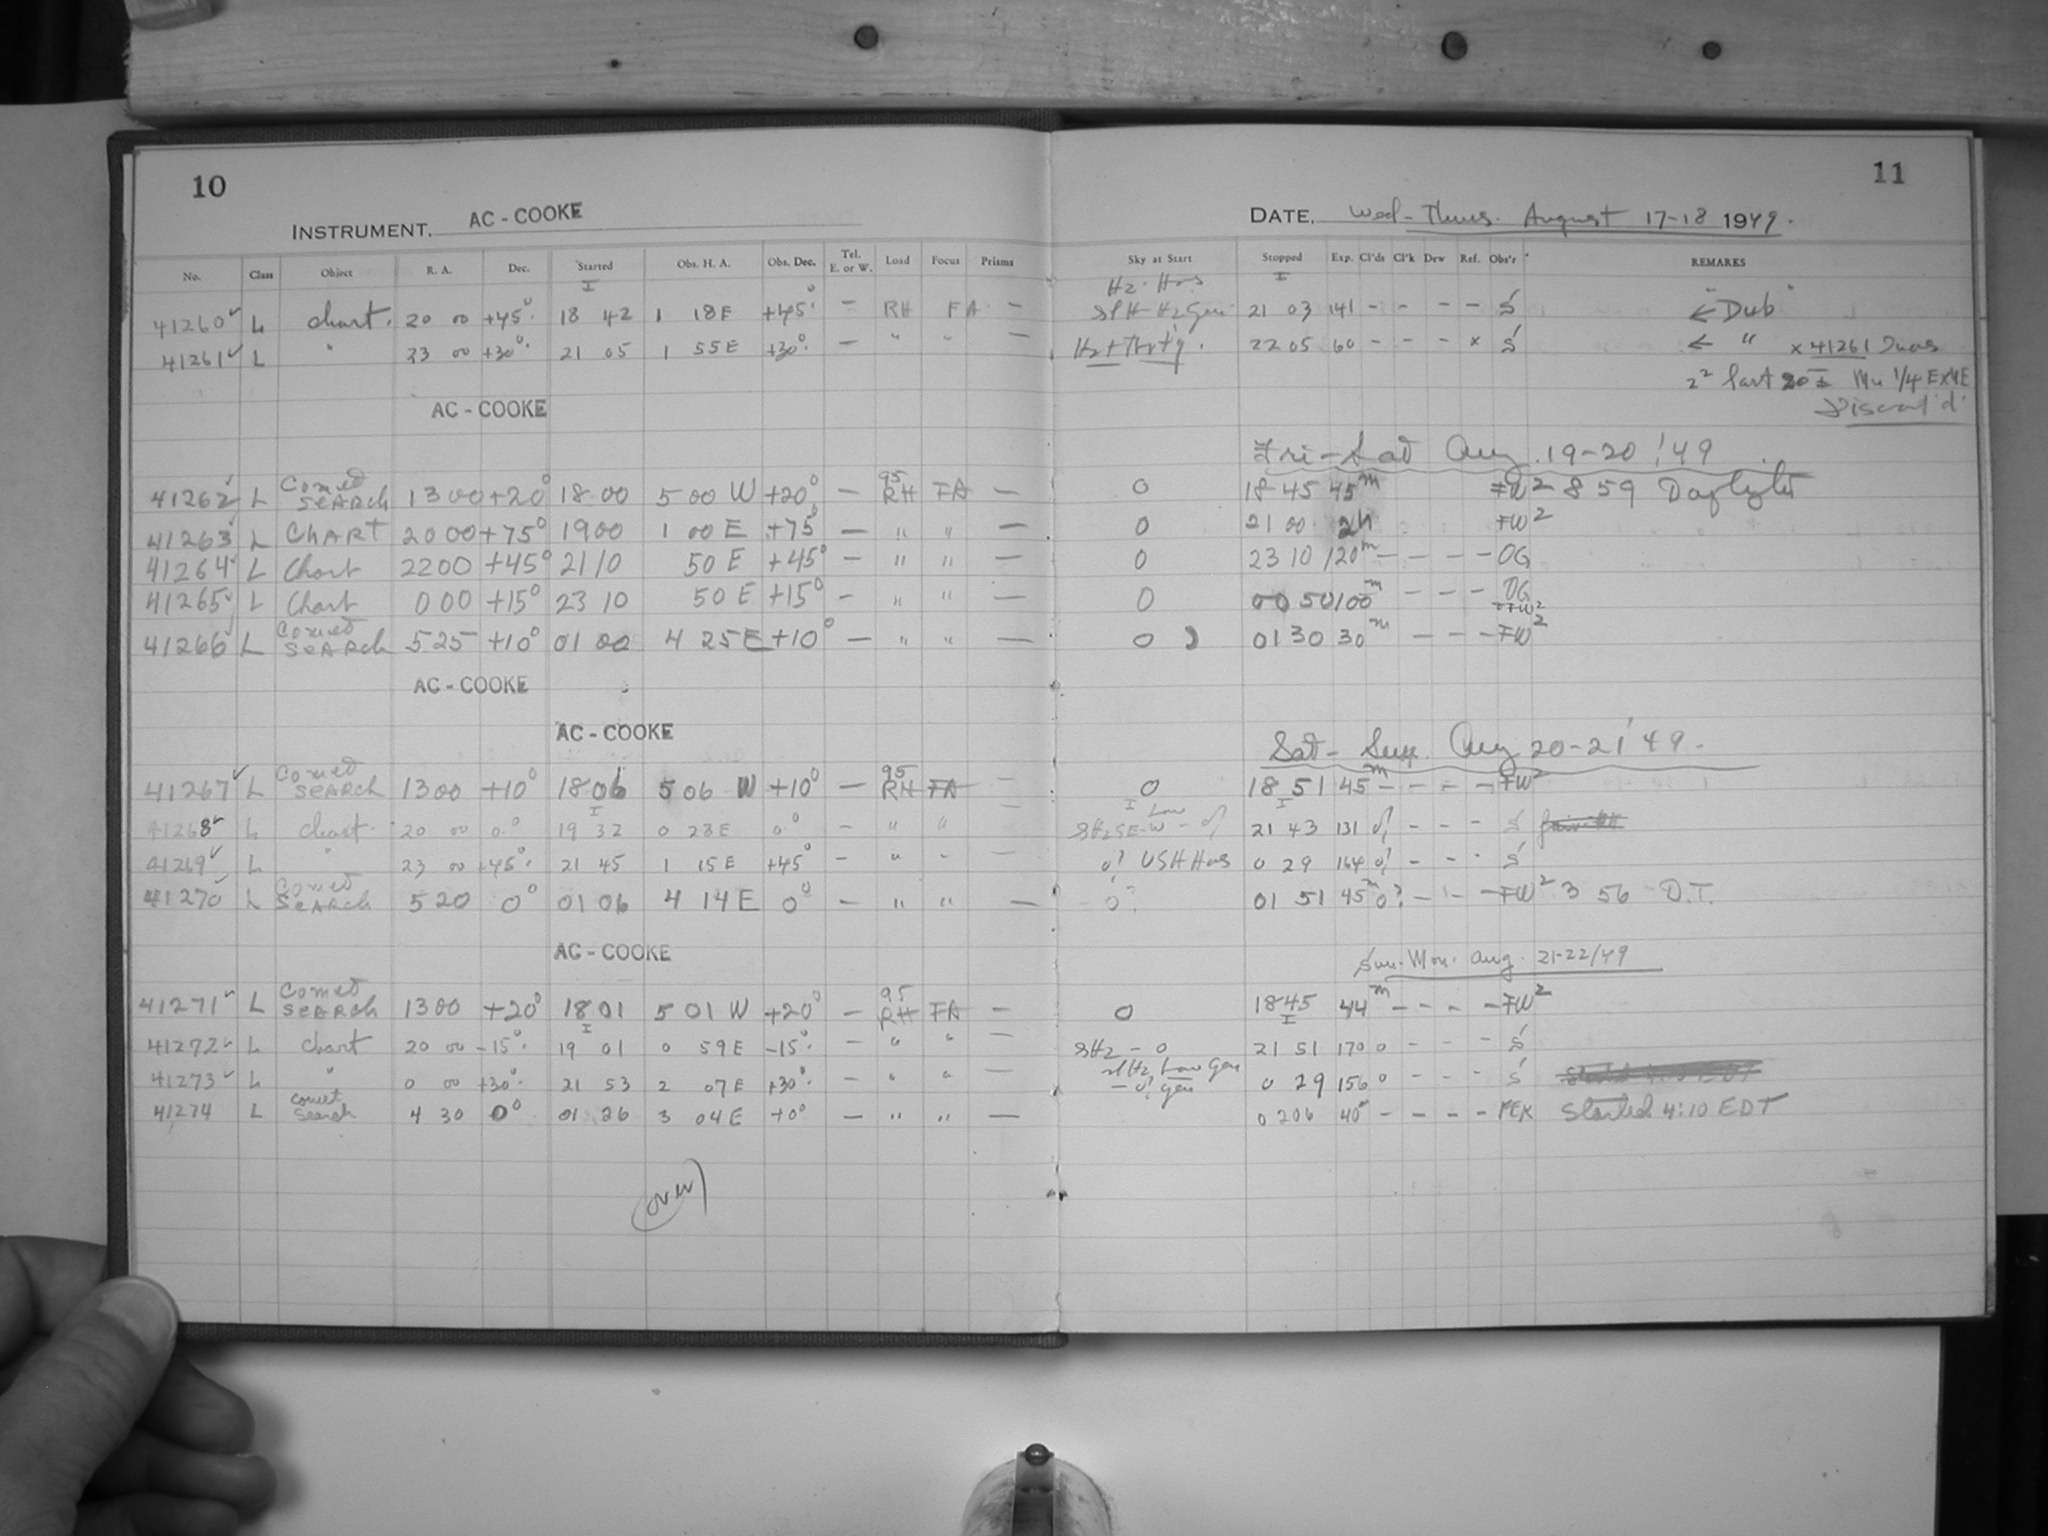 10
11
INSTRUMENT, AC - COOKE
DATE, Wed - Thurs. August 17-18 1949.
No. Class Object R. A. Dec. Started Obs. H. A. Obs. Dec. Tel. E. or W. Load Focus Prisms Sky at Start Stopped Exp. Cl'ds Cl'k Dew Ref. Obs'r REMARKS
41260 L chart. 20 00 +45° 18 42 1 18E +45° - RH FA - 21 03 141 - - - - S ← "Dub"
41261 L " 23 00 +30° 21 05 1 55E +30° - " " - 22 05 60 - - - x S ← " x 41261
AC - COOKE
Fri - Sat Aug. 19-20 '49
41262 L Comet SEARCH 13 00 +20° 18 00 5 00 W +20° - 95 RH FA - 0 18 45 45m FW2 8 59
41263 L CHART 20 00 +75° 19 00 1 00 E +75° - " " - 0 21 00 2h FW2
41264 L Chart 22 00 +45° 21 10 50 E +45° - " " - 0 23 10 120m - - - - OG
41265 L Chart 0 00 +15° 23 10 50 E +15° - " " - 0 00 50 100m - - - OG
41266 L Comet SEARCH 5 25 +10° 01 00 4 25 E +10° - " " - 0 01 30 30m - - - - FW2
AC - COOKE
AC - COOKE
Sat - Sun. Aug 20-21 '49.
41267 L Comet SEARCH 13 00 +10° 18 06 5 06 W +10° - 95 RH FA - 0 18 51 45m - - - - FW2
41268 L chart. 20 00 0° 19 32 0 28E 0° - " " - 21 43 131 - - - S
41269 L " 23 00 +45° 21 45 1 15E +45° - " " - 0 29 164 - - - S
41270 L Comet SEARCH 5 20 0° 01 06 4 14 E 0° - " " - 01 51 45m 0? - - - FW2 3 56 D.T.
AC - COOKE
Sun - Mon. Aug. 21-22/49
41271 L Comet SEARCH 13 00 +20° 18 01 5 01 W +20° - 95 RH FA - 0 18 45 44m - - - - FW2
41272 L chart 20 00 -15° 19 01 0 59E -15° - " " - 21 51 170 0 - - - S
41273 L " 0 00 +30° 21 53 2 07E +30° - " " - 0 29 156 0 - - - S
41274 L comet search 4 30 0° 01 26 3 04E +0° - " " - 0206 40m - - - - Started 4:10 EDT
(over)